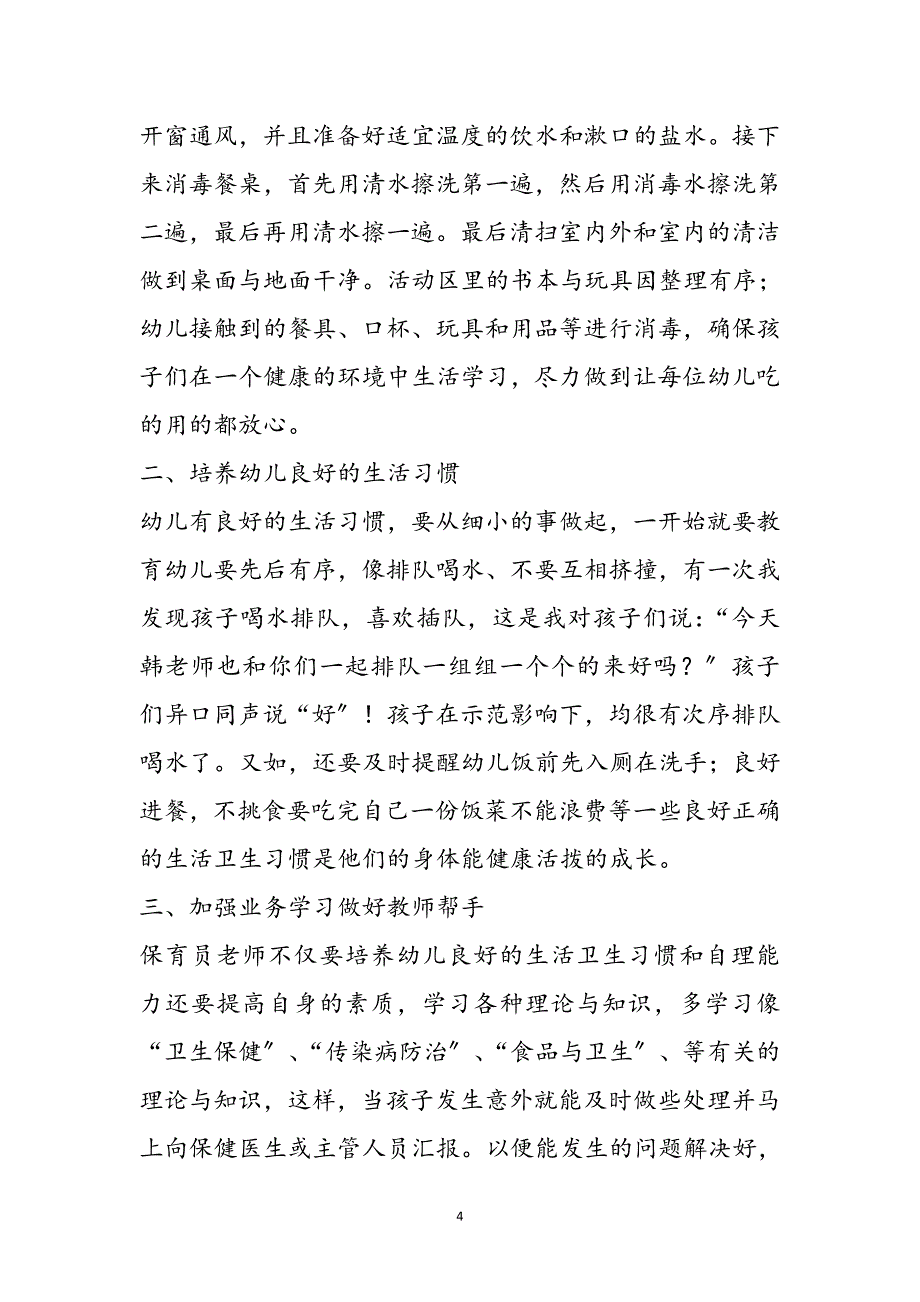 开窗通风，并且准备好适宜温度的饮水和漱口的盐水。接下
来消毒餐桌，首先用清水擦洗第一遍，然后用消毒水擦洗第
二遍，最后再用清水擦一遍。最后清扫室内外和室内的清洁
做到桌面与地面干净。活动区里的书本与玩具因整理有序；
幼儿接触到的餐具、口杯、玩具和用品等进行消毒，确保孩
子们在一个健康的环境中生活学习，尽力做到让每位幼儿吃
的用的都放心。
二、培养幼儿良好的生活习惯
幼儿有良好的生活习惯，要从细小的事做起，一开始就要教
育幼儿要先后有序，像排队喝水、不要互相挤撞，有一次我
发现孩子喝水排队，喜欢插队，这是我对孩子们说：“今天
韩老师也和你们一起排队一组组一个个的来好吗？〞孩子
们异口同声说“好〞！孩子在示范影响下，均很有次序排队
喝水了。又如，还要及时提醒幼儿饭前先入厕在洗手；良好
进餐，不挑食要吃完自己一份饭菜不能浪费等一些良好正确
的生活卫生习惯是他们的身体能健康活拨的成长。
三、加强业务学习做好教师帮手
保育员老师不仅要培养幼儿良好的生活卫生习惯和自理能
力还要提高自身的素质，学习各种理论与知识，多学习像
“卫生保健〞、“传染病防治〞、“食品与卫生〞、等有关的
理论与知识，这样，当孩子发生意外就能及时做些处理并马
上向保健医生或主管人员汇报。以便能发生的问题解决好，
4